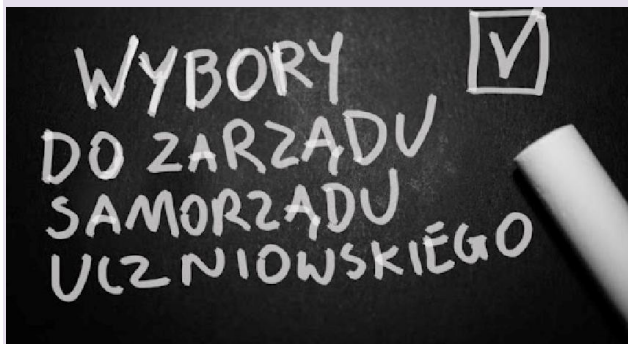 WYBORY
DO ZARZĄDU
SAMORZĄDU
UCZNIOWSKIEGO